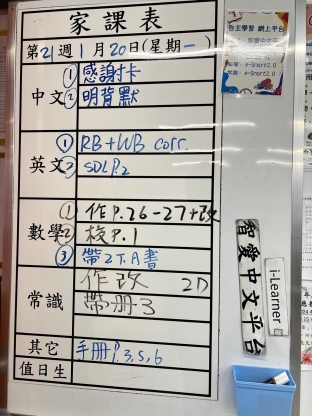 家課表
第21週1月20日(星期一)
中文
①感謝咭
②明背默
英文
①RB+WB corr.
②SDL P.2
數學
①作P.26-27+改
②梭P.1
③帶2下A書
常識
作改 2D
帶冊3
其它
手冊P.3,5,6
值日生
自主學習 網上平台
智愛中文平台
i-Learner